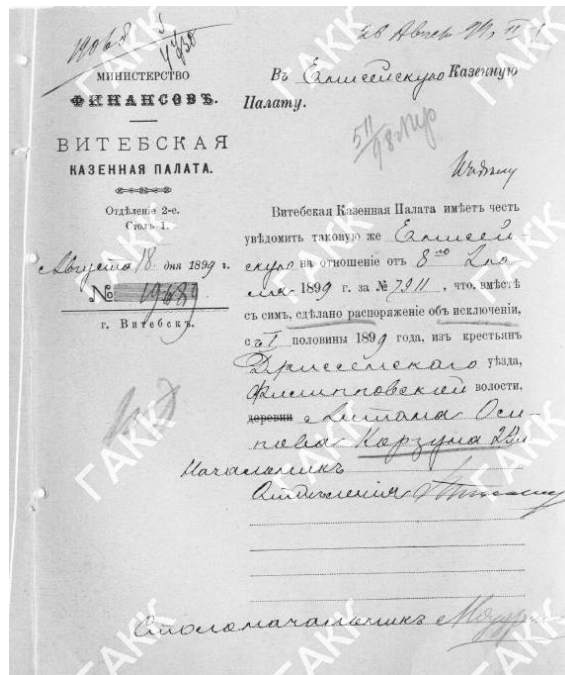 28 Август 99. II
МИНИСТЕРСТВО
ФИНАНСОВЪ.
ВИТЕБСКАЯ
КАЗЕННАЯ ПАЛАТА.
Отдѣленіе 2-е.
Столъ 1.
Августа 18 дня 1899 г.
№ 19689
г. Витебскъ.
Въ Енисейскую Казенную
Палату.
Витебская Казенная Палата имѣетъ честь
увѣдомить таковую же Енисей-
скую на отношеніе отъ 8го Ію
1899 г. за № 7911, что, вмѣстѣ
съ симъ, сдѣлано распоряженіе объ исключеніи,
съ I половины 1899 года, изъ крестьянъ
Дриссенскаго уѣзда,
Филипповской волости,
деревни Антона Оси-
пова Корзуна
Начальникъ
Отдѣленія
Столоначальникъ
ГАКК